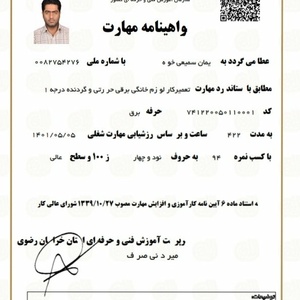 سازمان آموزش فنی و حرفه ای کشور
واهینامه مهارت
عطا می گردد به یمان سمیعی خو ه با شماره ملی ۰۰۸۲۷۵۴۲۷۶
مطابق با ستاند رد مهارت تعمیرکار لو زم خانگی برقی حر رتی و گردنده درجه ۱
کد ۷۴۱۲۲۰۰۵۰۱۱۰۰۰۱ حرفه برق
به مدت ۴۲۲ ساعت و بر ساس رزشیابی مهارت شغلی ۱۴۰۱/۰۵/۰۵
با کسب نمره ۹۴ به حروف نود و چهار ز ۱۰۰ و سطح عالی
به استناد ماده ۶ آیین نامه کارآموزی و افزایش مهارت مصوب ۱۳۳۹/۱۰/۲۷ شورای عالی کار
آموزش فنی و حرفه ای
توضیحات: